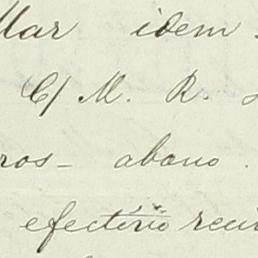 Mar idem
C/ M. R.
ros- abono.
efectivo reci